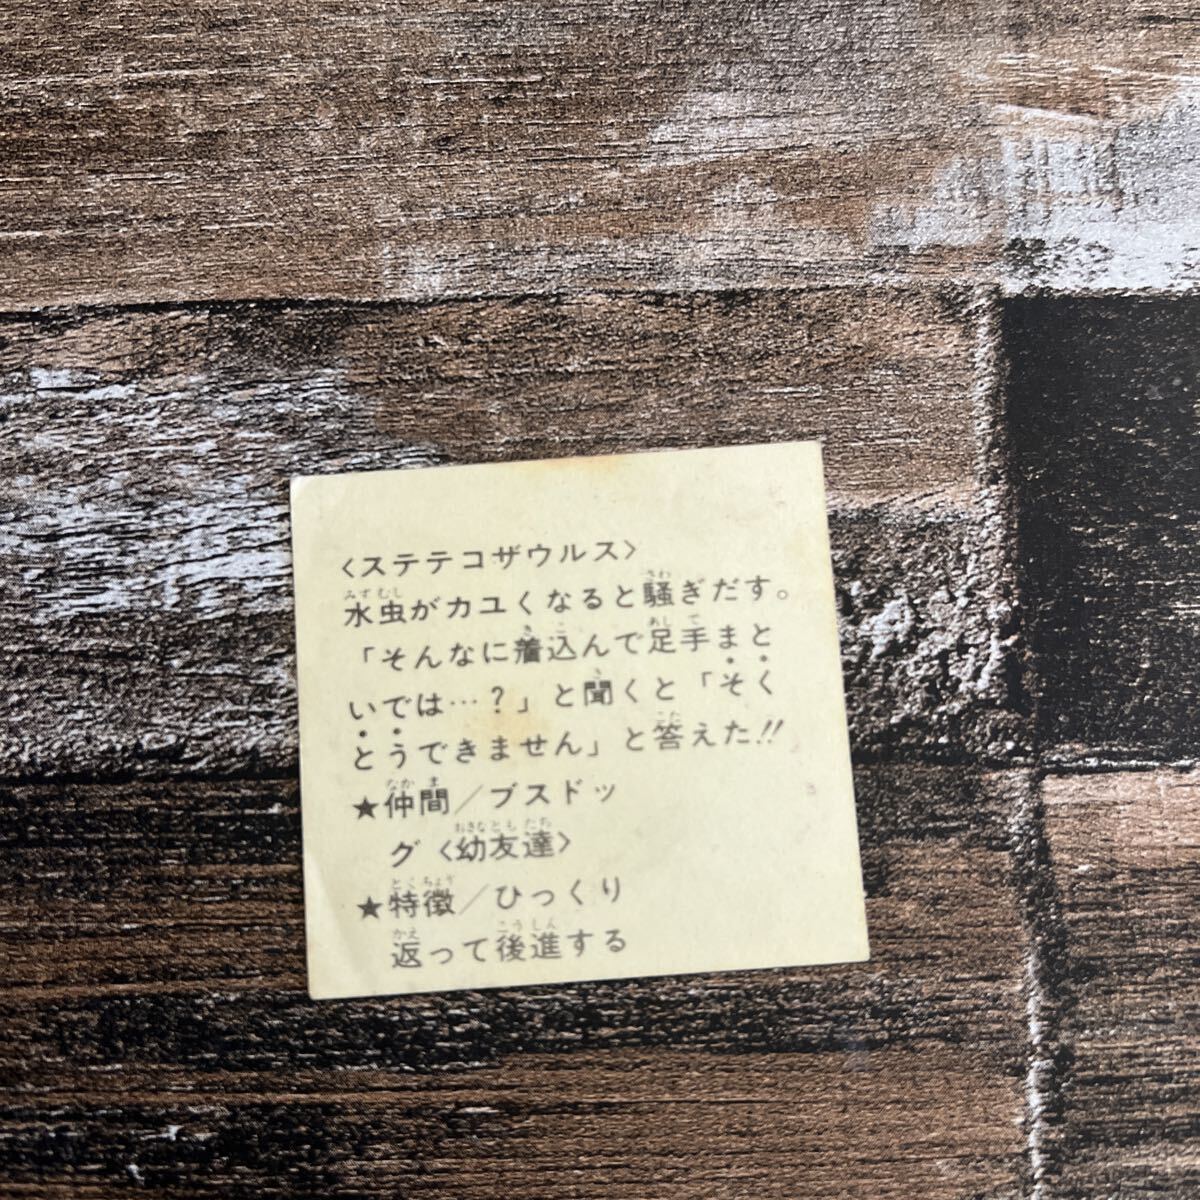 〈ステテコザウルス〉
水虫がカユくなると騒ぎだす。
「そんなに着込んで足手まと
いでは…?」と聞くと「そく
とうできません」と答えた!!
★仲間/ブスドッ
グ〈幼友達〉
★特徴/ひっくり
返って後進する